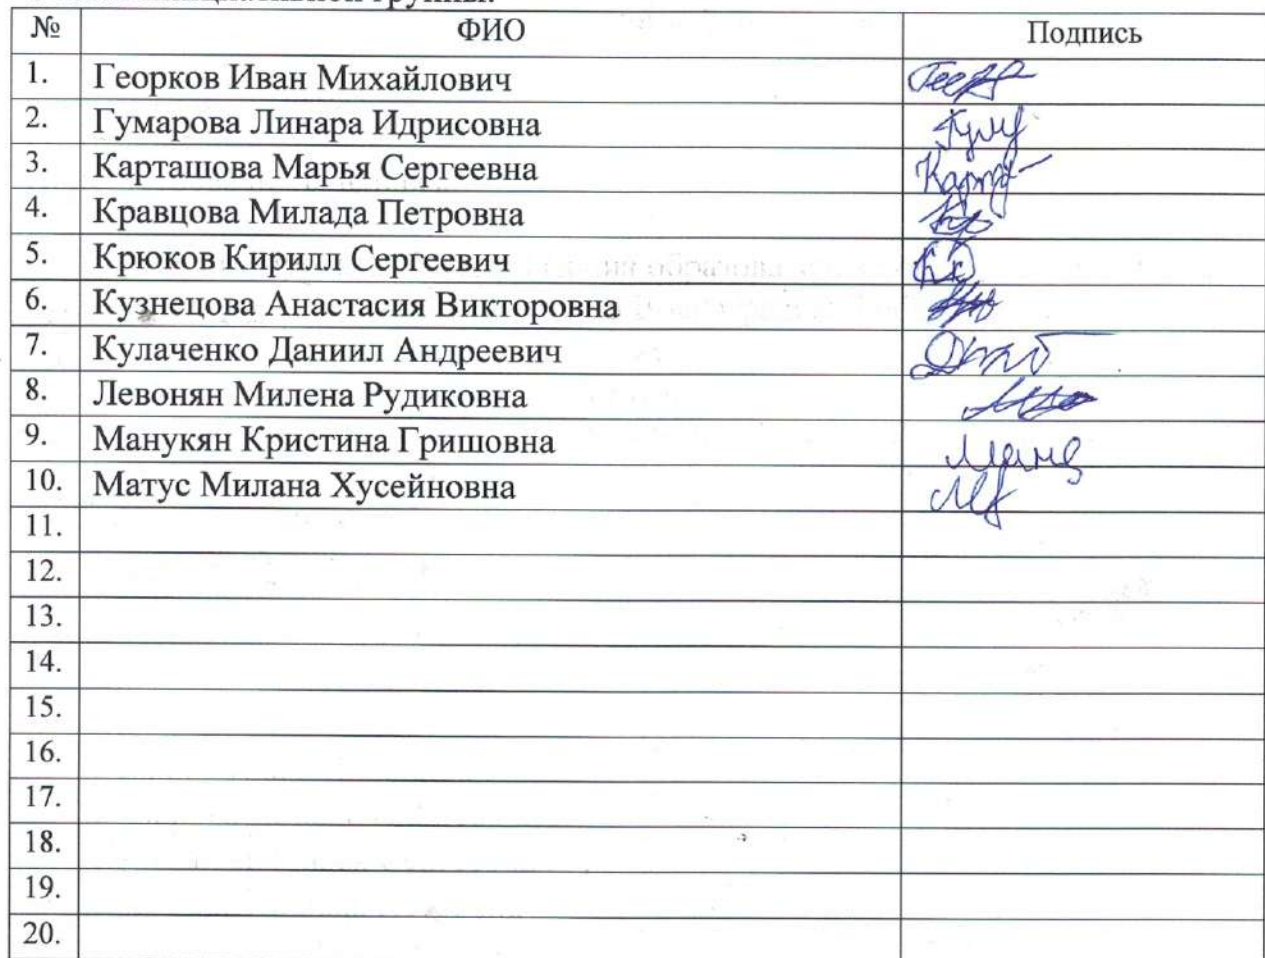 № ФИО Подпись
1. Георков Иван Михайлович
2. Гумарова Линара Идрисовна
3. Карташова Марья Сергеевна
4. Кравцова Милада Петровна
5. Крюков Кирилл Сергеевич
6. Кузнецова Анастасия Викторовна
7. Кулаченко Даниил Андреевич
8. Левонян Милена Рудиковна
9. Манукян Кристина Гришовна
10. Матус Милана Хусейновна
11.
12.
13.
14.
15.
16.
17.
18.
19.
20.